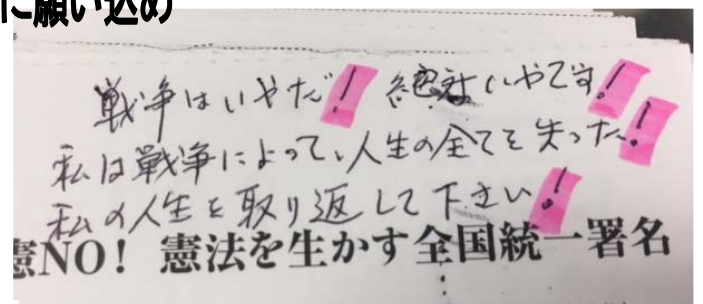 に願い込め
戦争はいやだ! 絶対いやです!
私は戦争によって、人生の全てを失った!
私の人生を取り返して下さい!
憲NO! 憲法を生かす全国統一署名